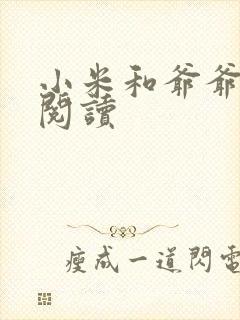 小米和爺爺
閱讀
瘦成一道閃電